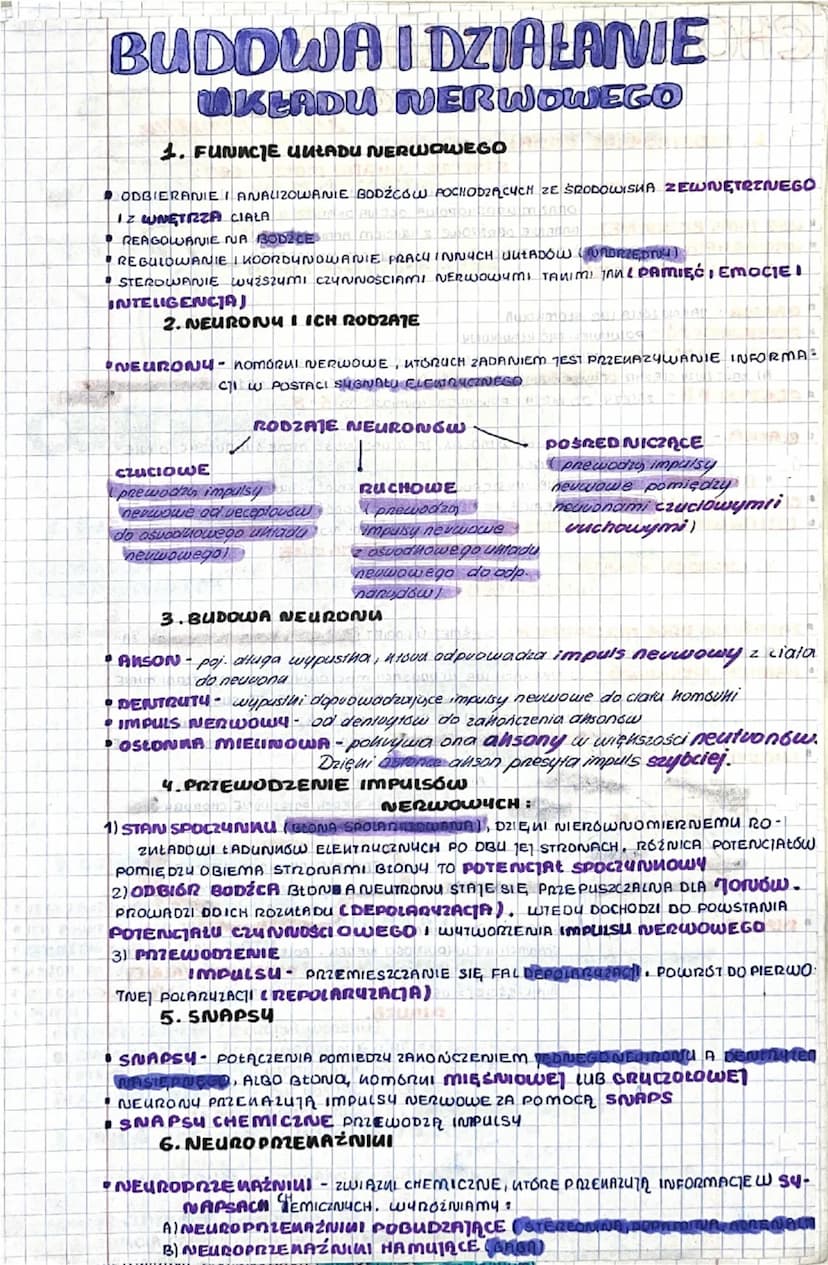 BUDOWA I DZIAŁANIE
UKŁADU NERWOWEGO
1. FUNKCJE UKŁADU NERWOWEGO
• ODBIERANIE I ANALIZOWANIE BODŹCÓW POCHODZĄCYCH ZE ŚRODOWISKA ZEWNĘTRZNEGO
I Z WNĘTRZA CIAŁA
• REAGOWANIE NA BODŹCE
• REGULOWANIE I KOORDYNOWANIE PRACY INNYCH UKŁADÓW (NADRZĘDNY)
• STEROWANIE WYŻSZYMI CZYNNOŚCIAMI NERWOWYMI TAKIMI JAK (PAMIĘĆ, EMOCJE I
INTELIGENCJA)
2. NEURONY I ICH RODZAJE
• NEURONY - KOMÓRKI NERWOWE, KTÓRYCH ZADANIEM JEST PRZEKAZYWANIE INFORMA-
CJI W POSTACI SYGNAŁU ELEKTRYCZNEGO
RODZAJE NEURONÓW
CZUCIOWE
(prewodzą impulsy
nerwowe od receptorów
do ośrodkowego układu
nerwowego)
RUCHOWE
(prewodzą
impulsy nerwowe
z ośrodkowego układu
nerwowego do odp.
narządów)
POŚREDNICZĄCE
(prewodzą impulsy
nerwowe pomiędzy
neuronami czuciowymi i
ruchowymi)
3. BUDOWA NEURONU
• AKSON - poj. długa wypustka, która odprowadza impuls nerwowy z ciała
do neurona
• DENTRYTY - wypustki doprowadzające impulsy nerwowe do ciała komórki
• IMPULS NERWOWY - od dentrytów do zakończenia aksonów
• OSŁONKA MIELINOWA - pokrywa ona aksony w większości neutronów.
Dzięki osłonce akson przesyła impuls szybciej.
4. PRZEWODZENIE IMPULSÓW
NERWOWYCH:
1) STAN SPOCZYNKU (BŁONA SPOLARYZOWANA), DZIĘKI NIERÓWNOMIERNEMU RO-
ZKŁADOWI ŁADUNKÓW ELEKTRYCZNYCH PO DBU JEJ STRONACH. RÓŻNICA POTENCJAŁÓW
POMIĘDZY OBIEMA STRONAMI BŁONY TO POTENCJAŁ SPOCZYNKOWY
2) ODBIÓR BODŹCA BŁONA NEUTRONU STAJE SIĘ PRZEPUSZCZALNA DLA JONÓW.
PROWADZI DO ICH ROZKŁADU (DEPOLARYZACJA). WTEDY DOCHODZI DO POWSTANIA
POTENCJAŁU CZYNNOŚCIOWEGO I WYTWORZENIA IMPULSU NERWOWEGO
3) PRZEWODZENIE
IMPULSU - PRZEMIESZCZANIE SIĘ FAL DEPOLARYZACJI. POWRÓT DO PIERWO-
TNEJ POLARYZACJI (REPOLARYZACJA)
5. SNAPSY
• SNAPSY - POŁĄCZENIA POMIĘDZY ZAKOŃCZENIEM JEDNEGO NEURONU A DENTRYTEM
NASTĘPNEGO, ALBO BŁONĄ, KOMÓRKI MIĘŚNIOWEJ LUB GRUCZOŁOWEJ
• NEURONY PRZEKAZUJĄ IMPULSY NERWOWE ZA POMOCĄ SNAPS
• SNAPSY CHEMICZNE PRZEWODZĄ IMPULSY
6. NEUROPRZEKAŹNIKI
• NEUROPRZEKAŹNIKI - ZWIĄZKI CHEMICZNE, KTÓRE PRZEKAZUJĄ INFORMACJE W SY-
NAPSACH CHEMICZNYCH. WYRÓŻNIAMY:
A) NEUROPRZEKAŹNIKI POBUDZAJĄCE (DOPAMINA, ADRENALI
B) NEUROPRZEKAŹNIKI HAMUJĄCE (GABA)